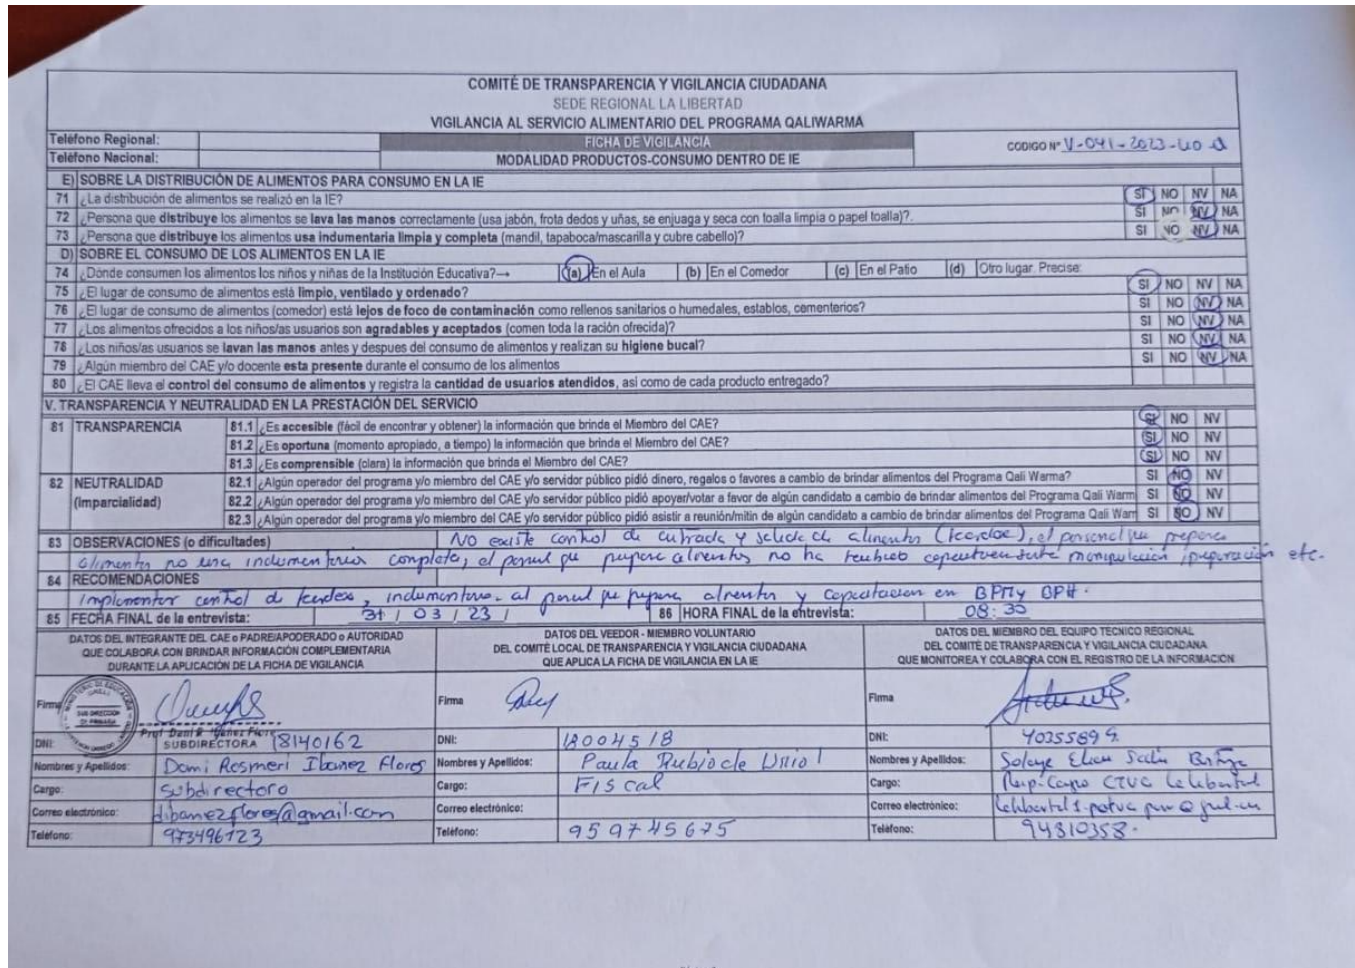 COMITÉ DE TRANSPARENCIA Y VIGILANCIA CIUDADANA
SEDE REGIONAL LA LIBERTAD
VIGILANCIA AL SERVICIO ALIMENTARIO DEL PROGRAMA QALIWARMA
Teléfono Regional: FICHA DE VIGILANCIA CODIGO N° V-041-2023-
Teléfono Nacional: MODALIDAD PRODUCTOS-CONSUMO DENTRO DE IE
E) SOBRE LA DISTRIBUCIÓN DE ALIMENTOS PARA CONSUMO EN LA IE
71 ¿La distribución de alimentos se realizó en la IE? SI NO NV NA
72 ¿Persona que distribuye los alimentos se lava las manos correctamente (usa jabón, frota dedos y uñas, se enjuaga y seca con toalla limpia o papel toalla)?. SI NO NV NA
73 ¿Persona que distribuye los alimentos usa indumentaria limpia y completa (mandil, tapaboca/mascarilla y cubre cabello)? SI NO NV NA
D) SOBRE EL CONSUMO DE LOS ALIMENTOS EN LA IE
74 ¿Dónde consumen los alimentos los niños y niñas de la Institución Educativa?→ (a) En el Aula (b) En el Comedor (c) En el Patio (d) Otro lugar. Precise:
75 ¿El lugar de consumo de alimentos está limpio, ventilado y ordenado? SI NO NV NA
76 ¿El lugar de consumo de alimentos (comedor) está lejos de foco de contaminación como rellenos sanitarios o humedales, establos, cementerios? SI NO NV NA
77 ¿Los alimentos ofrecidos a los niños/as usuarios son agradables y aceptados (comen toda la ración ofrecida)? SI NO NV NA
78 ¿Los niños/as usuarios se lavan las manos antes y despues del consumo de alimentos y realizan su higiene bucal? SI NO NV NA
79 ¿Algún miembro del CAE y/o docente esta presente durante el consumo de los alimentos SI NO NV NA
80 ¿El CAE lleva el control del consumo de alimentos y registra la cantidad de usuarios atendidos, asi como de cada producto entregado?
V. TRANSPARENCIA Y NEUTRALIDAD EN LA PRESTACIÓN DEL SERVICIO
81 TRANSPARENCIA 81.1 ¿Es accesible (fácil de encontrar y obtener) la información que brinda el Miembro del CAE? SI NO NV
81.2 ¿Es oportuna (momento apropiado, a tiempo) la información que brinda el Miembro del CAE? SI NO NV
81.3 ¿Es comprensible (clara) la información que brinda el Miembro del CAE? SI NO NV
82 NEUTRALIDAD (imparcialidad) 82.1 ¿Algún operador del programa y/o miembro del CAE y/o servidor público pidió dinero, regalos o favores a cambio de brindar alimentos del Programa Qali Warma? SI NO NV
82.2 ¿Algún operador del programa y/o miembro del CAE y/o servidor público pidió apoyar/votar a favor de algún candidato a cambio de brindar alimentos del Programa Qali Warm SI NO NV
82.3 ¿Algún operador del programa y/o miembro del CAE y/o servidor público pidió asistir a reunión/mitin de algún candidato a cambio de brindar alimentos del Programa Qali Warm SI NO NV
83 OBSERVACIONES (o dificultades) No existe control de entrada y salida de alimentos (kardex), el personal que prepara
alimentos no usa indumentaria completa, el personal que prepara alimentos no ha recibido manipulación preparación etc.
84 RECOMENDACIONES
Implementar control de kardex, indumentaria al personal que prepara alimentos y capacitacion en BPM y BPH.
85 FECHA FINAL de la entrevista: 31 / 03 / 23 / 86 HORA FINAL de la entrevista: 08:30
DATOS DEL INTEGRANTE DEL CAE o PADRE/APODERADO o AUTORIDAD
QUE COLABORA CON BRINDAR INFORMACIÓN COMPLEMENTARIA
DURANTE LA APLICACIÓN DE LA FICHA DE VIGILANCIA
DATOS DEL VEEDOR - MIEMBRO VOLUNTARIO
DEL COMITÉ LOCAL DE TRANSPARENCIA Y VIGILANCIA CIUDADANA
QUE APLICA LA FICHA DE VIGILANCIA EN LA IE
DATOS DEL MIEMBRO DEL EQUIPO TECNICO REGIONAL
DEL COMITÉ DE TRANSPARENCIA Y VIGILANCIA CIUDADANA
QUE MONITOREA Y COLABORA CON EL REGISTRO DE LA INFORMACIÓN
Firma Firma Firma
SUB DIRECCION DE PRIMARIA
SUBDIRECTORA
DNI: 18140162 DNI: 18004518 DNI: 40355899
Nombres y Apellidos: Dami Rosmeri Ibanez Flores Nombres y Apellidos: Paula Rubio de Nombres y Apellidos:
Cargo: Subdirectora Cargo: Fiscal Cargo: CTVC La Libertad
Correo electrónico: dibanezflores@gmail.com Correo electrónico: Correo electrónico:
Telefono: 973496123 Teléfono: 959745675 Teléfono: 94810358.